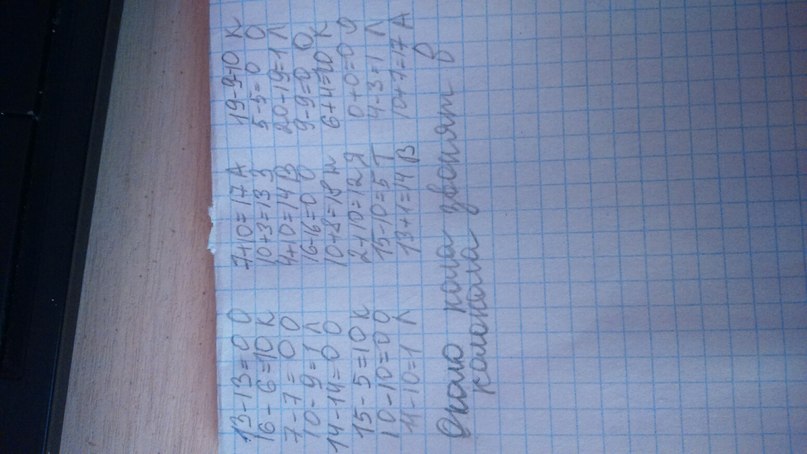 13-13=0 О
16-6=10 К
7-7=0 О
10-9=1 Л
14-14=0 О
15-5=10 К
10-10=0 О
11-10=1 Л
7+10=17 А
10+3=13 З
4+0=14 В
16-16=0 О
10+8=18 Н
2+10=12 Я
15-10=5 Т
13+1=14 В
19-9=10 К
5-5=0 О
20-19=1 Л
9-9=0 О
6+4=10 К
0+0=0 О
4-3=1 Л
10+7=17 А
Около кола звонят в
колокола